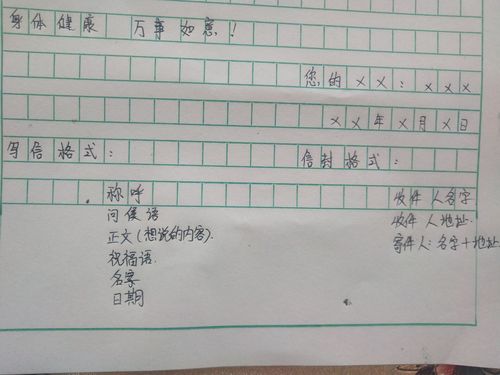 身体健康 万事如意！
您的××：×××
××年×月×日
写信格式： 信封格式：
称呼 收件人名字
问侯语 收件人地址.
正文(想说的内容). 寄件人:名字+地址
祝福语.
名字
日期